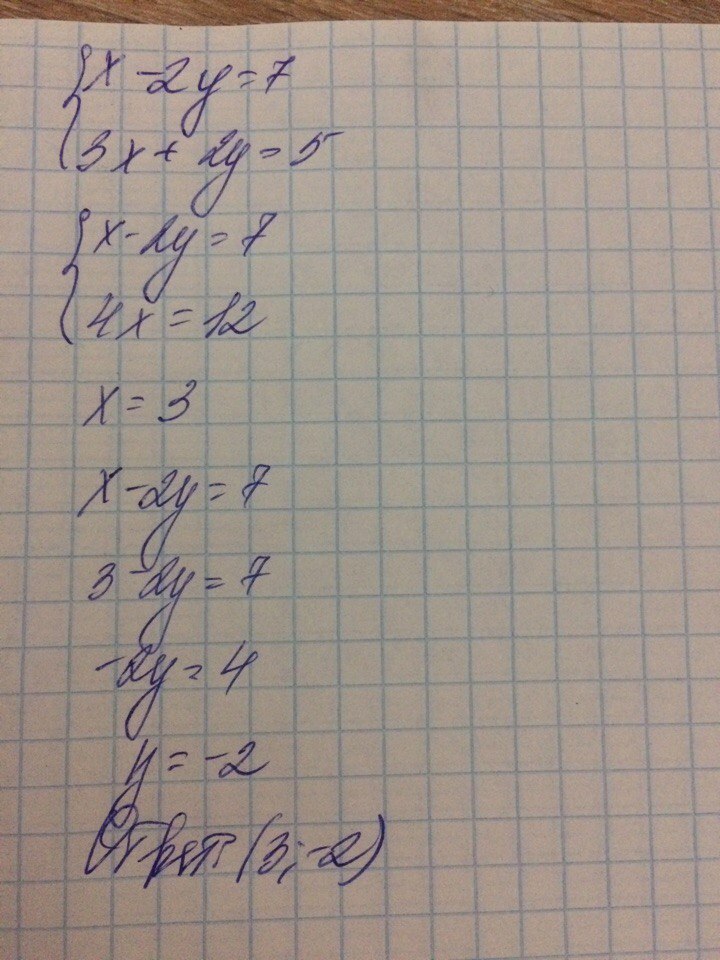 x - 2y = 7
3x + 2y = 5
x - 2y = 7
4x = 12
x = 3
x - 2y = 7
3 - 2y = 7
-2y = 4
y = -2
Ответ (3; -2)